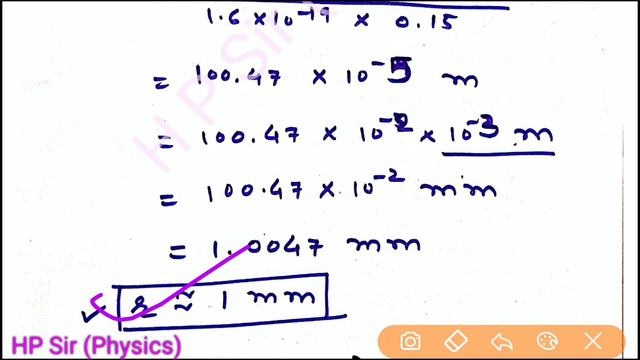 1.6 × 10⁻¹⁹ × 0.15
= 100.47 × 10⁻⁵ m
= 100.47 × 10⁻² × 10⁻³ m
= 100.47 × 10⁻² mm
= 1.0047 mm
r ≈ 1 mm
HP Sir
HP Sir (Physics)